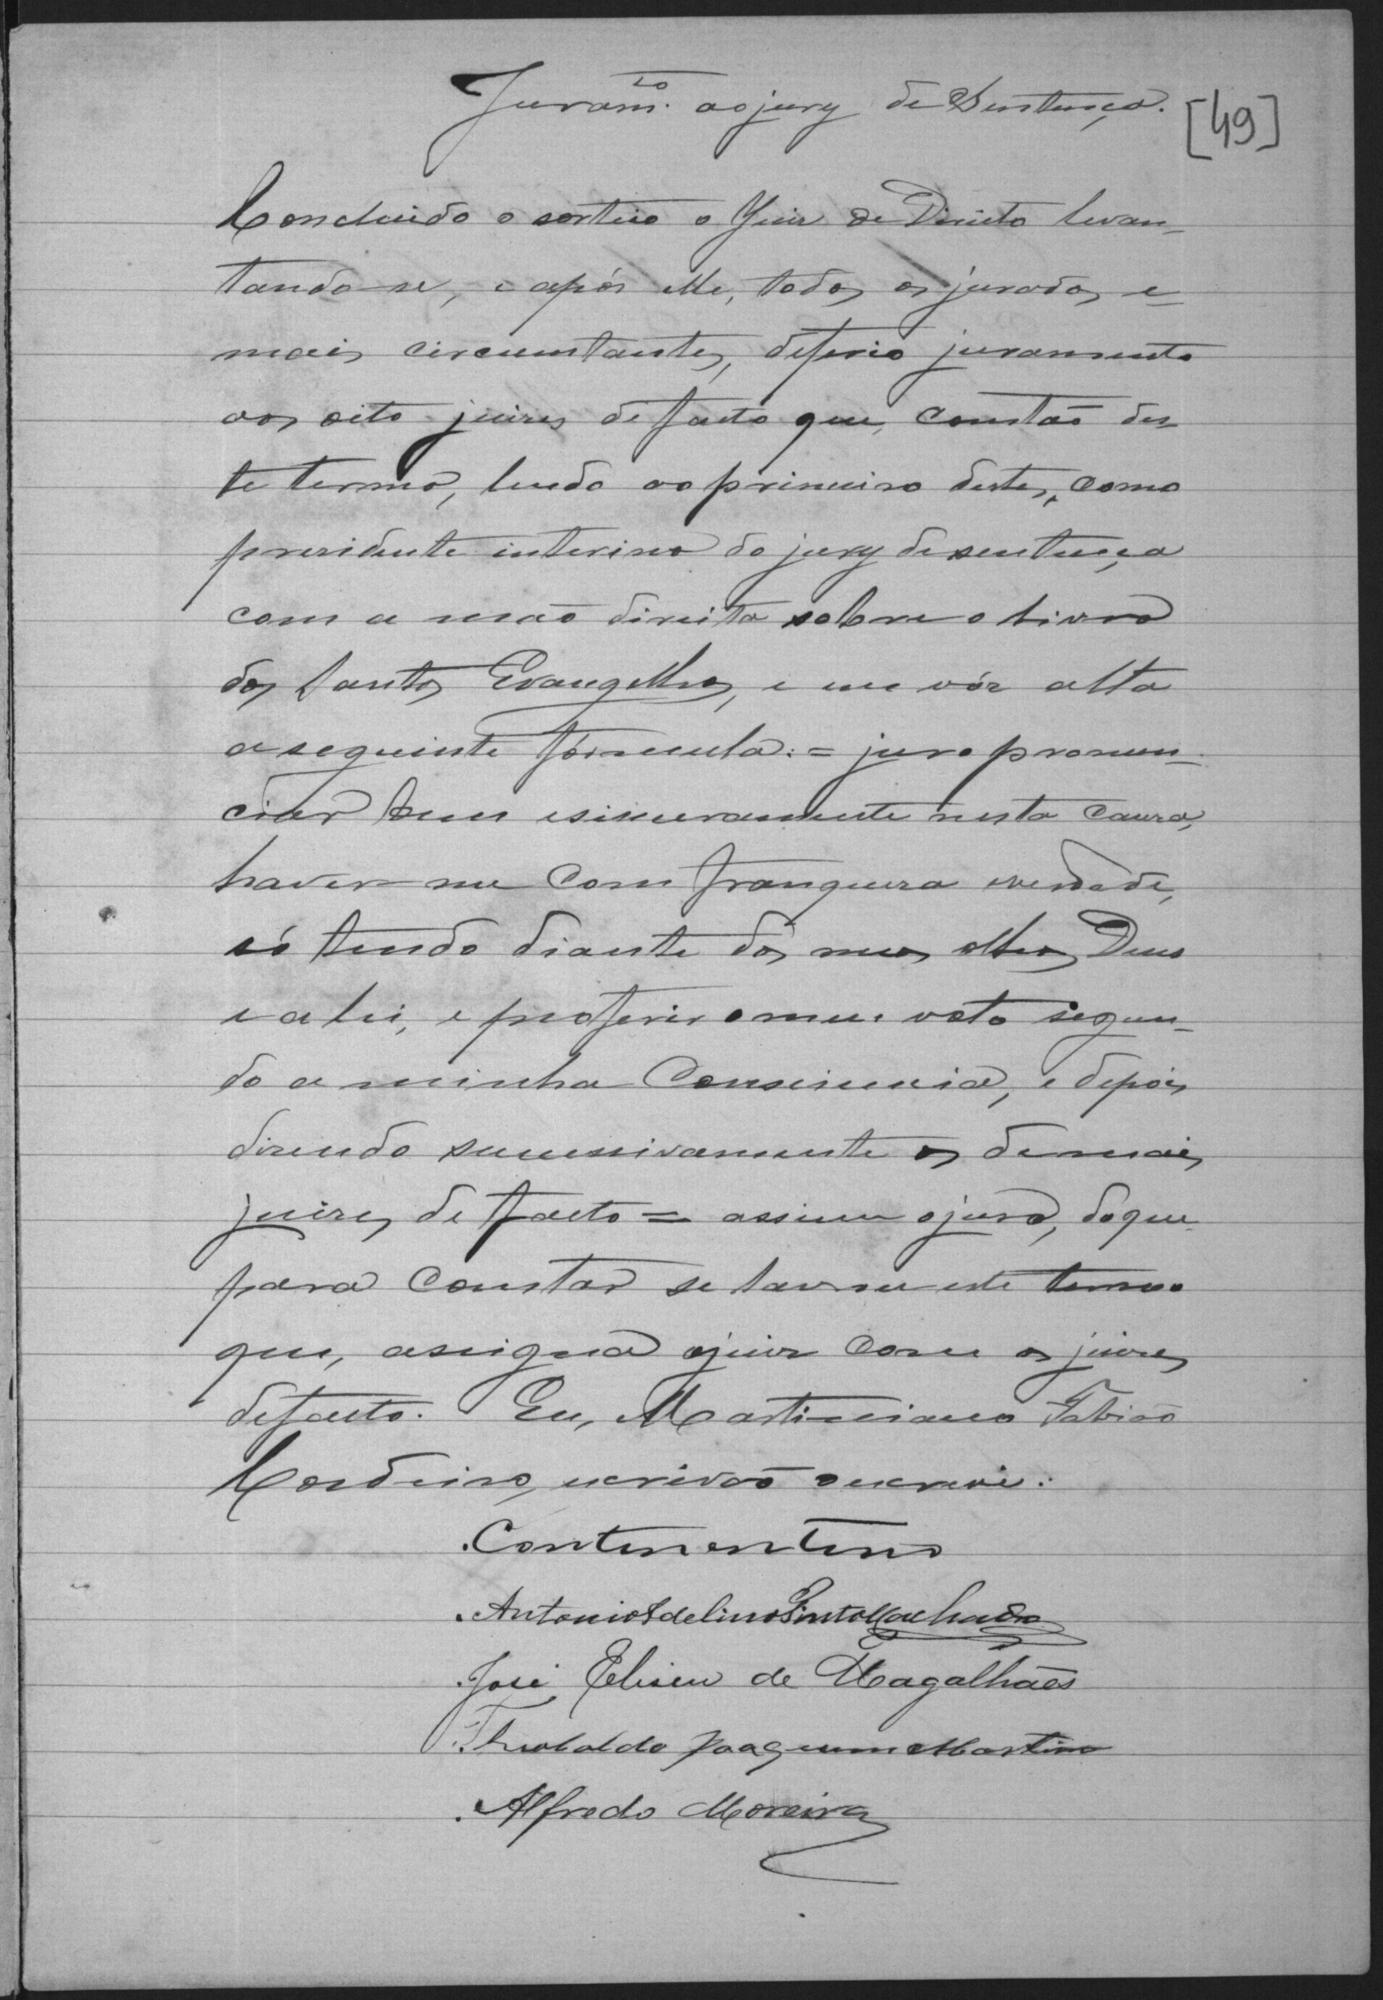 Juram.to ao jury de Sentença.
[49]
Concluido o sorteio o Juiz de Direito levan-
tando-se, e após elle, todos os jurados e
mais circumstantes, deferio juramento
aos oito juizes de facto que, constão des-
te termo, lendo ao primeiro destes, como
presidente interino do jury de sentença
com a mão direita sobre o livro
dos Santos Evangelhos, e em vóz alta
a seguinte fórmula: = juro pronun-
ciar bem e sinceramente nesta causa,
haver-me com franqueza e verdade,
só tendo diante dos meus olhos Deus
e a lei, e proferir o meu voto segun-
do a minha Consciencia, e depois
dizendo successivamente os demais
juizes de facto = assim o juro, do que
para constar se lavrou este termo
que, assigna o juiz com os juizes
de facto. Eu, Martiniano Fabião
Cordeiro, escrivão o escrevi.
Continentino
Antonio Adelino Pinto Machado
José Eliseu de Magalhães
Theobaldo Joaquim Martins
Alfredo Moreira